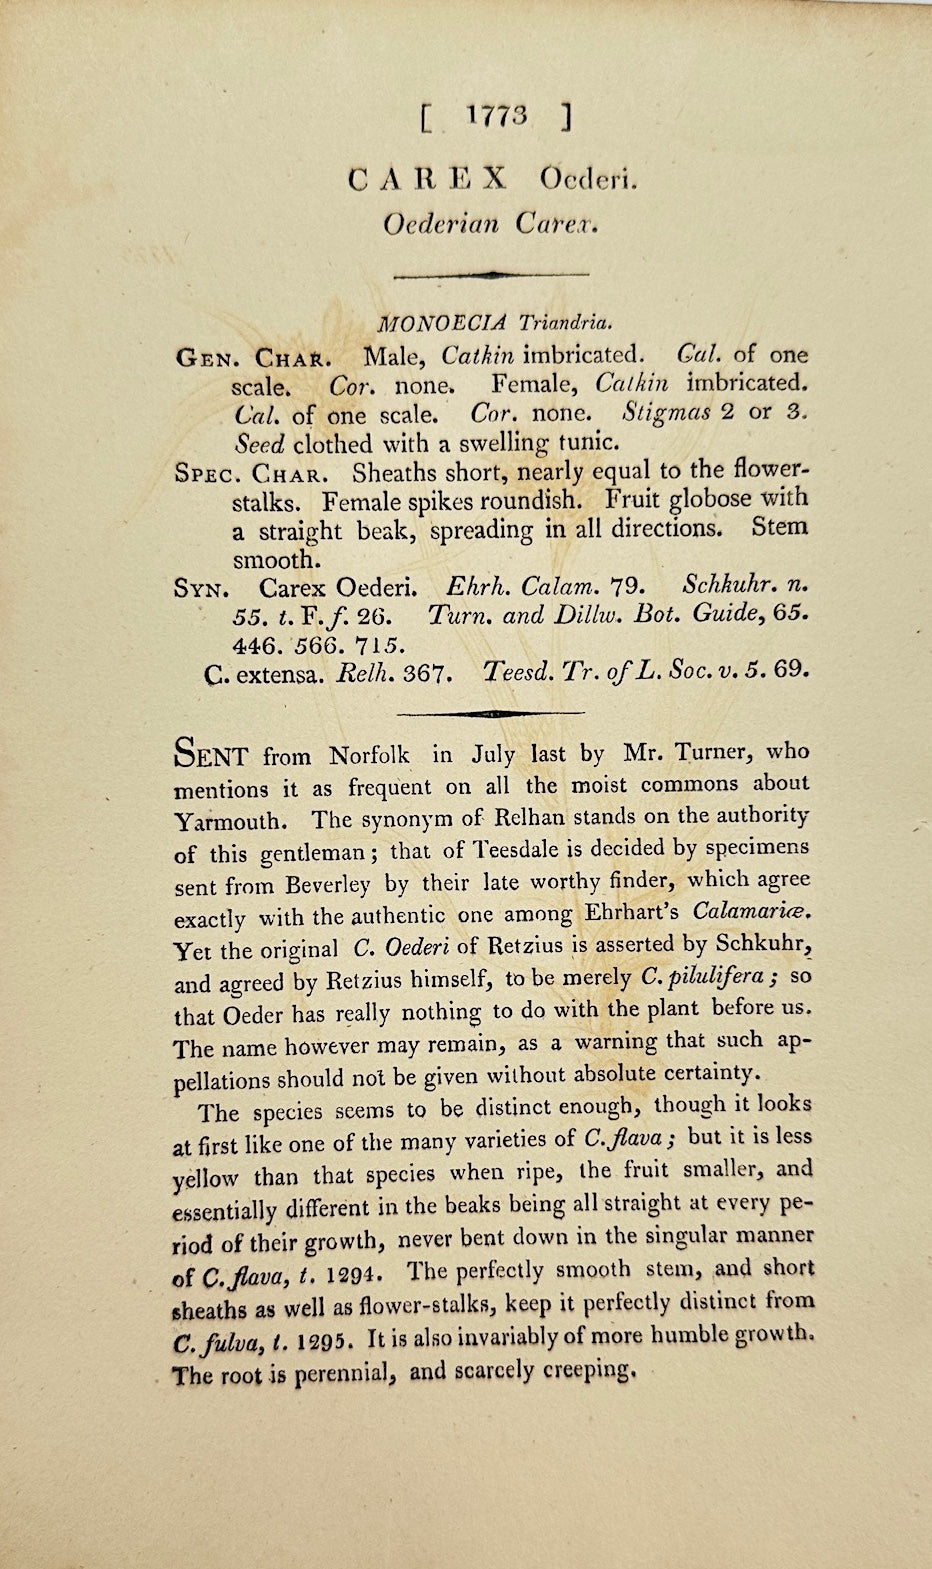 [ 1773 ]
CAREX Oederi.
Oederian Carex.
MONOECIA Triandria.
GEN. CHAR. Male, Catkin imbricated. Cal. of one
scale. Cor. none. Female, Catkin imbricated.
Cal. of one scale. Cor. none. Stigmas 2 or 3.
Seed clothed with a swelling tunic.
SPEC. CHAR. Sheaths short, nearly equal to the flower-
stalks. Female spikes roundish. Fruit globose with
a straight beak, spreading in all directions. Stem
smooth.
SYN. Carex Oederi. Ehrh. Calam. 79. Schkuhr. n.
55. t. F. f. 26. Turn. and Dillw. Bot. Guide, 65.
446. 566. 715.
C. extensa. Relh. 367. Teesd. Tr. of L. Soc. v. 5. 69.
SENT from Norfolk in July last by Mr. Turner, who
mentions it as frequent on all the moist commons about
Yarmouth. The synonym of Relhan stands on the authority
of this gentleman; that of Teesdale is decided by specimens
sent from Beverley by their late worthy finder, which agree
exactly with the authentic one among Ehrhart's Calamariæ.
Yet the original C. Oederi of Retzius is asserted by Schkuhr,
and agreed by Retzius himself, to be merely C. pilulifera; so
that Oeder has really nothing to do with the plant before us.
The name however may remain, as a warning that such ap-
pellations should not be given without absolute certainty.
The species seems to be distinct enough, though it looks
at first like one of the many varieties of C. flava; but it is less
yellow than that species when ripe, the fruit smaller, and
essentially different in the beaks being all straight at every pe-
riod of their growth, never bent down in the singular manner
of C. flava, t. 1294. The perfectly smooth stem, and short
sheaths as well as flower-stalks, keep it perfectly distinct from
C. fulva, t. 1295. It is also invariably of more humble growth.
The root is perennial, and scarcely creeping.